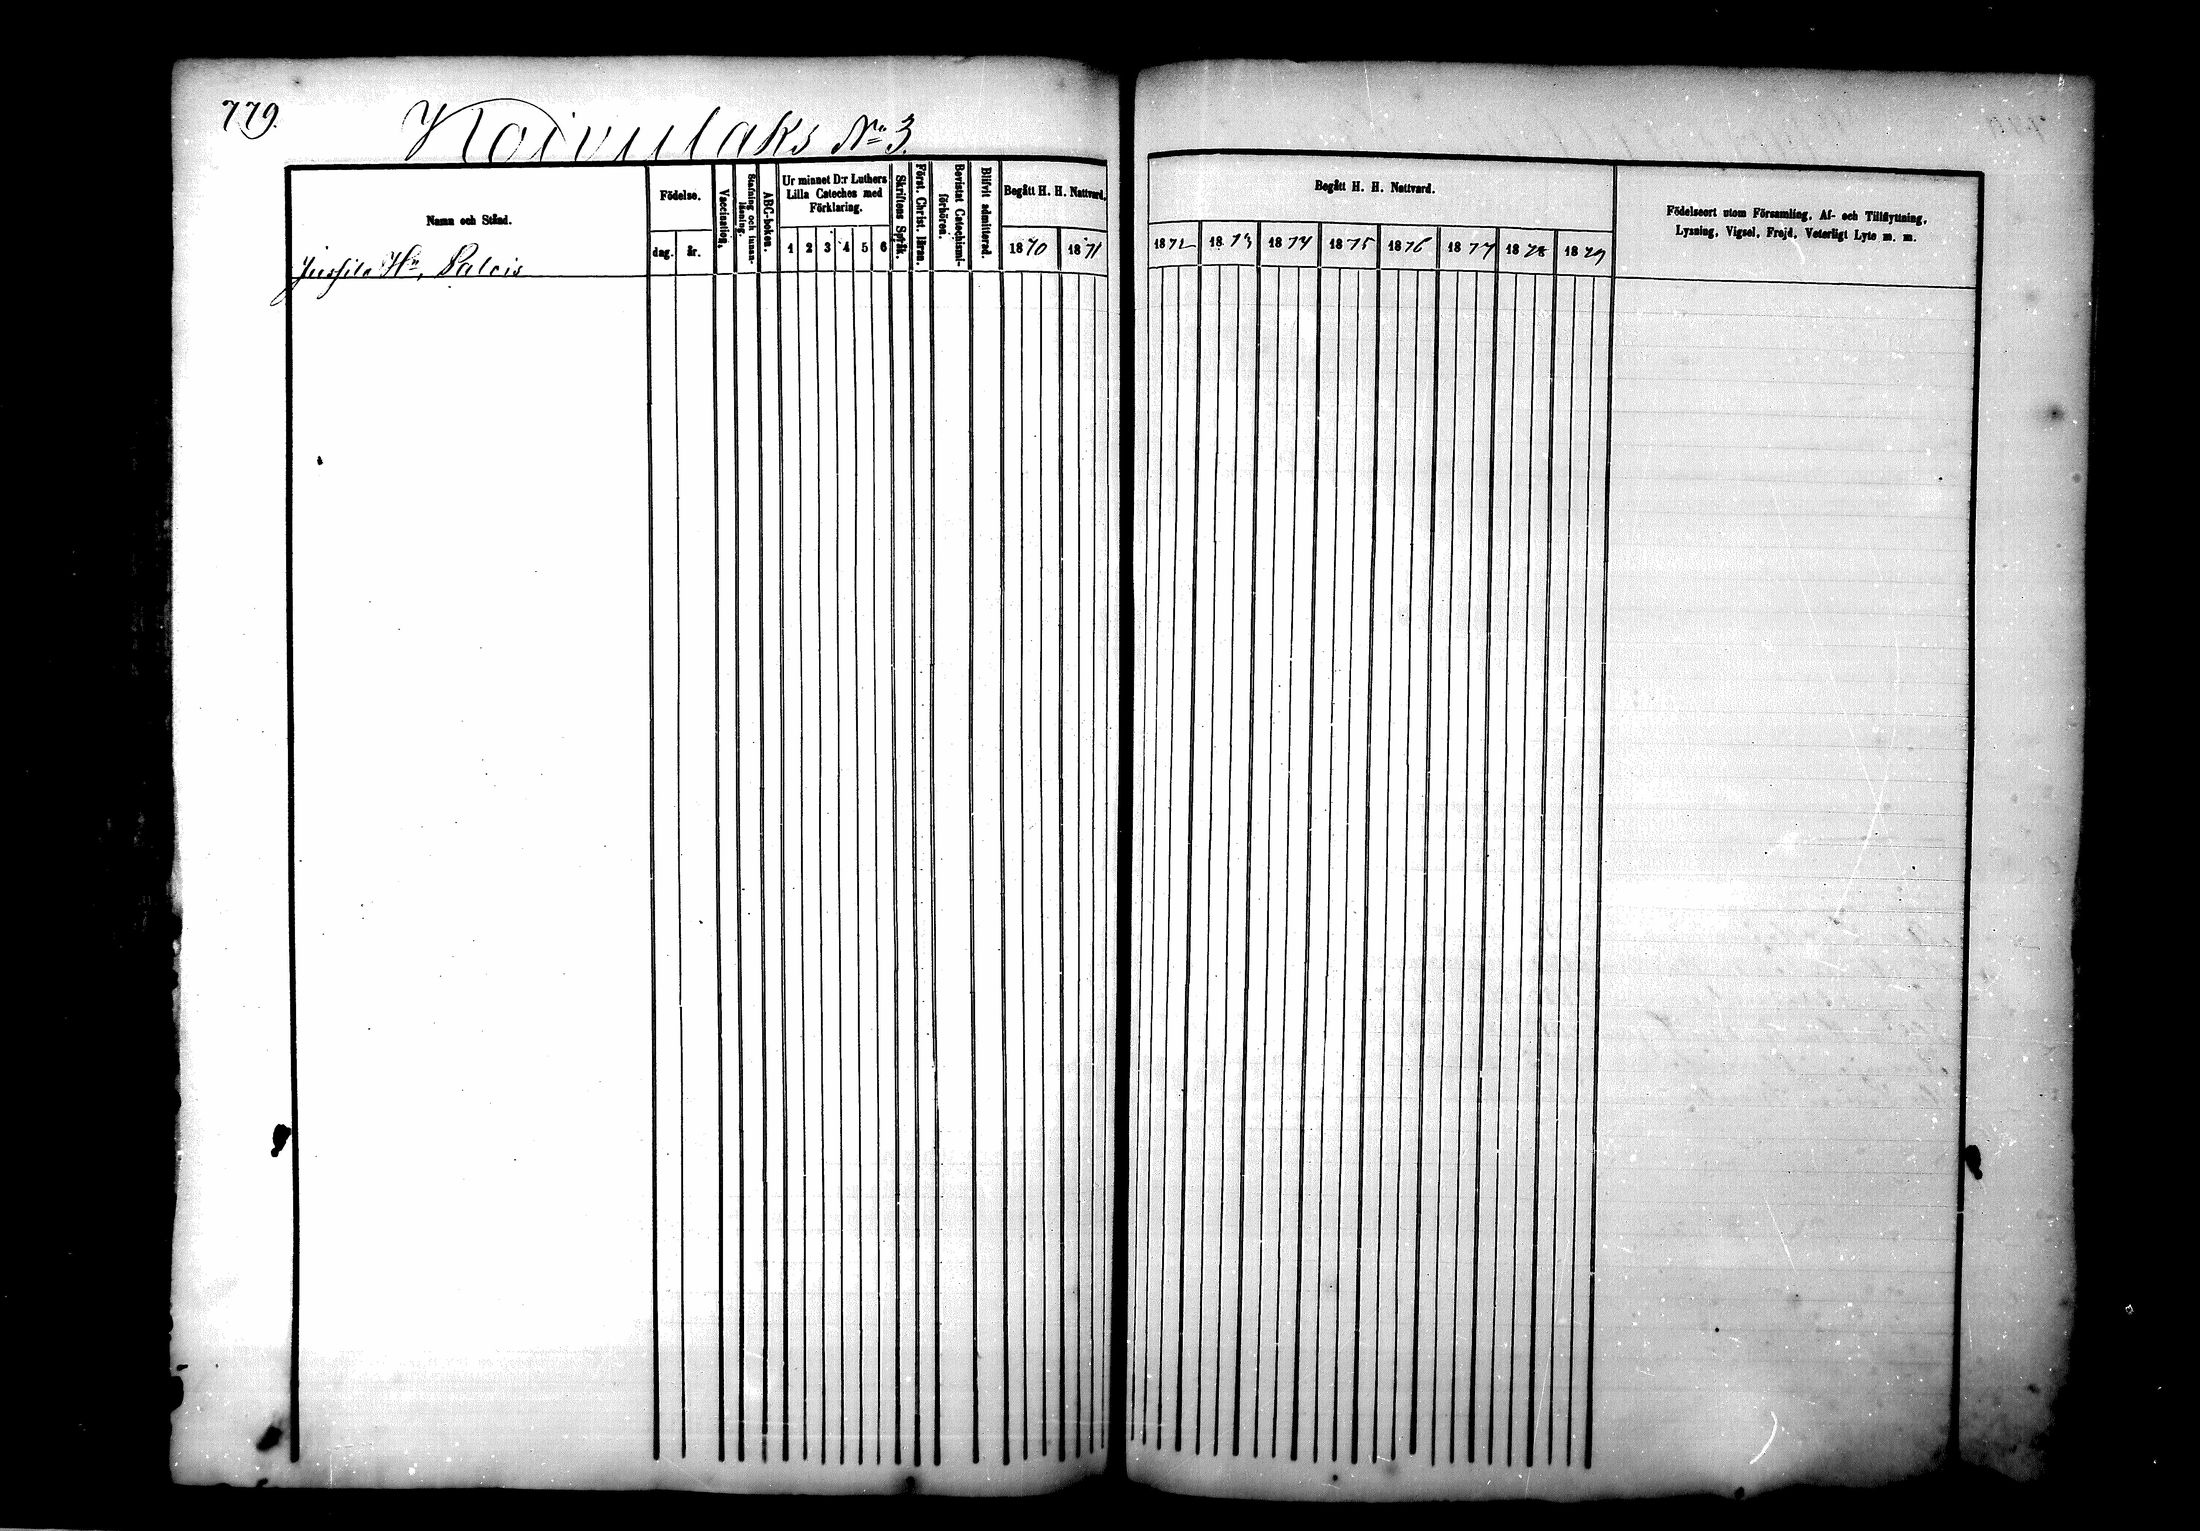 779.
Koivulaks No 3.
Namn och Stånd.
Födelse.
dag. år.
Vaccination.
Stafning och innan-läsning.
ABC-boken.
Ur minnet D:r Luthers
Lilla Cateches med
Förklaring.
1 2 3 4 5 6
Skriftens Språk.
Först. Christ. läran.
Bevistat Catechismi-förhören.
Blifvit admitterad.
Begått H. H. Nattvard.
1870 1871
Jussila Hn, Palais
Begått H. H. Nattvard.
1872 1873 1874 1875 1876 1877 1878 1879
Födelseort utom Församling, Af- och Tillflyttning,
Lysning, Vigsel, Frejd, Veterligt Lyte m. m.